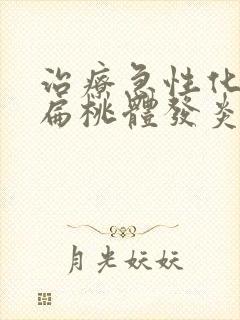 治療急性化
扁桃體發炎
月光妖妖